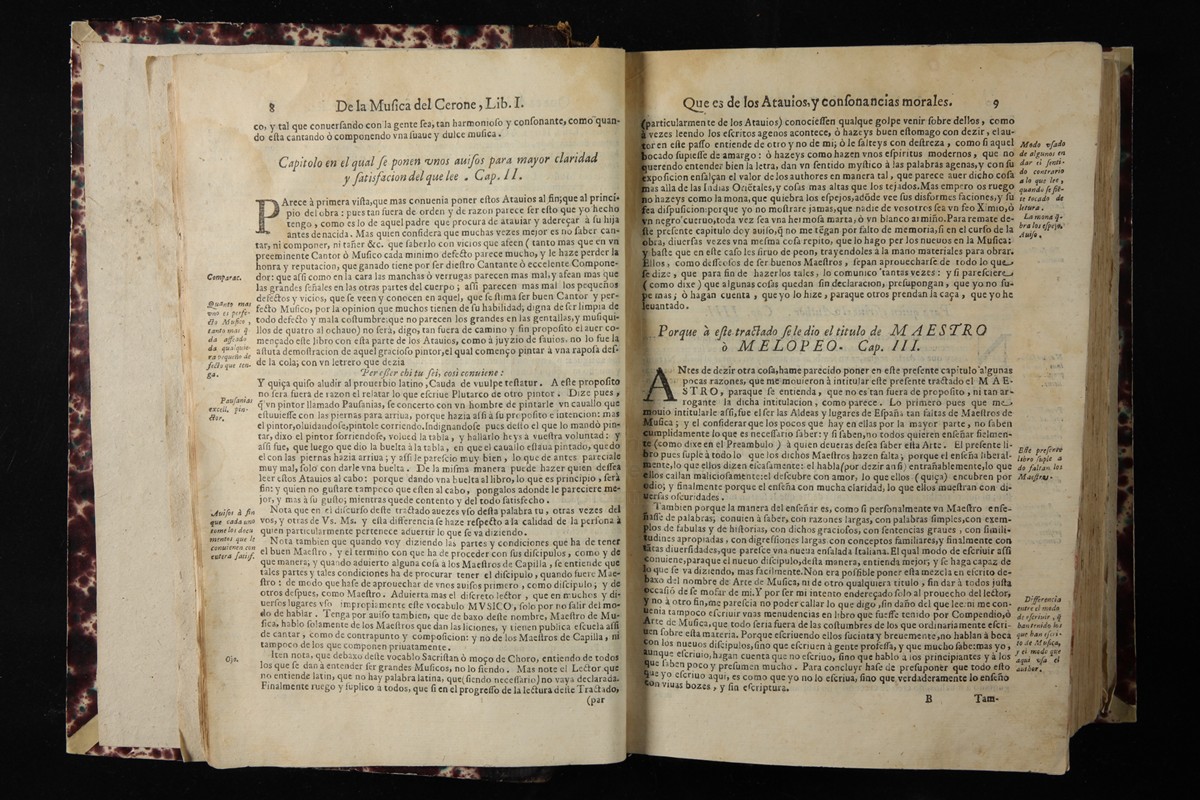 8 De la Musica del Cerone, Lib. I.
co, y tal que conuersando con la gente sea, tan harmonioso y consonante, como quan-
do esta cantando ò componendo vna suaue y dulce musica.
Capitolo en el qual se ponen vnos auisos para mayor claridad
y satisfacion del que lee. Cap. II.
PArece à primera vista, que mas conuenia poner estos Atauios al fin; que al princi-
pio del obra: pues tan fuera de orden y de razon parece ser esto que yo hecho
tengo, como es lo de aquel padre que procura de atauiar y adereçar à su hija
antes de nacida. Mas quien considera que muchas vezes mejor es no saber can-
tar, ni componer, ni tañer &c. que saberlo con vicios que afeen (tanto mas que en vn
preeminente Cantor ò Musico cada minimo defecto parece mucho, y le haze perder la
honra y reputacion, que ganado tiene por ser diestro Cantante ò eccelente Compone-
dor: que assi como en la cara las manchas ò verrugas parecen mas mal, y afean mas que
las grandes señales en las otras partes del cuerpo; assi parecen mas mal los pequeños
defectos y vicios, que se veen y conocen en aquel, que se stima ser buen Cantor y per-
fecto Musico, por la opinion que muchos tienen de su habilidad, digna de ser limpia de
todo defecto y mala costumbre; que no parecen los grandes en las gentallas, y musiqui-
llos de quatro al ochauo) no serà, digo, tan fuera de camino y sin proposito el auer co-
mençado este libro con esta parte de los Atauios, como à juyzio de sauios. no lo fue la
astuta demostracion de aquel gracioso pintor, el qual començo pintar à vna raposa des-
de la cola; con vn letrero que dezia
Per esser chi tu sei, cosi conuiene:
Y quiça quiso aludir al prouerbio latino, Cauda de vuulpe testatur. A este proposito
no sera fuera de razon el relatar lo que escriue Plutarco de otro pintor. Dize pues,
q̃ vn pintor llamado Pausanias, se concerto con vn hombre de pintarle vn cauallo que
estuuiesse con las piernas para arriua, porque hazia assi à su proposito e intencion: mas
el pintor, oluidandose, pintole corriendo. Indignandose pues desto el que lo mandò pin-
tar, dixo el pintor sorriendose, volued la tabla, y hallarlo heys a vuestra voluntad: y
assi fue, que luego que dio la buelta à la tabla, en que el cauallo estaua pintado, quedo
el con las piernas hazia arriua; y assi le parescio muy bien, lo que de antes pareciale
muy mal, solo con darle vna buelta. De la misma manera puede hazer quien dessea
leer estos Atauios al cabo: porque dando vna buelta al libro, lo que es principio, serà
fin: y quien no gustare tampoco que esten al cabo, pongalos adonde le pareciere me-
jor, y mas à su gusto; mientras quede contento y del todo satisfecho.
Nota que en el discurso deste tractado auezes vso desta palabra tu, otras vezes del
vos, y otras de Vs. Ms. y esta differencia se haze respecto a la calidad de la persona à
quien particularmente pertenece aduertir lo que se va diziendo.
Nota tambien que quando voy diziendo las partes y condiciones que ha de tener
el buen Maestro, y el termino con que ha de proceder con sus discipulos, como y de
que manera, y quando aduierto alguna cosa à los Maestros de Capilla, se entiende que
tales partes y tales condiciones ha de procurar tener el discipulo, quando fuere Mae-
stro: de modo que hase de aprouechar de vnos auisos primero, como discipulo; y de
otros despues, como Maestro. Aduierta mas el discreto lector, que en muchos y di-
uersos lugares vso impropiamente este vocabulo MVSICO, solo por no salir del mo-
do de hablar. Tenga por auiso tambien, que de baxo deste nombre, Maestro de Mu-
sica, hablo solamente de los Maestros que dan las liciones, y tienen publica escuela assi
de cantar, como de contrapunto y composicion: y no de los Maestros de Capilla, ni
tampoco de los que componen priuatamente.
Iten nota, que debaxo deste vocablo Sacristan ò moço de Choro, entiendo de todos
los que se dan a entender ser grandes Musicos, no lo siendo. Mas note el Lector que
no entiende latin, que no hay palabra latina, que (siendo necessario) no vaya declarada.
Finalmente ruego y suplico à todos, que si en el progresso de la lectura deste Tractado,
(par
Comparac.
Quanto mas
vno es perfe-
cto Musico,
tanto mas q̃
da affeado
da qualquie-
ra pequeño de
fecto que ten-
ga.
Pausanias
excell. pin-
ctor.
Auisos à fin
que cada uno
tome los docu
mentos que le
conuienen con
entera satisf.
Ojo.
Que es de los Atauios, y consonancias morales. 9
(particularmente de los Atauios) conociessen qualque golpe venir sobre dellos, como
à vezes leendo los escritos agenos acontece, ò hazeys buen estomago con dezir, el au-
tor en este passo entiende de otro y no de mi; ò le salteys con destreza, como si aquel
bocado supiesse de amargo: ò hazeys como hazen vnos espiritus modernos, que no
querendo entender bien la letra, dan vn sentido mystico à las palabras agenas, y con su
exposicion ensalçan el valor de los authores en manera tal, que parece auer dicho cosa
mas alla de las Indias Oriẽtales, y cosas mas altas que los tejados. Mas empero os ruego
no hazeys como la mona, que quiebra los espejos, adõde vee sus disformes faciones, y su
fea dispusicion: porque yo no mostrare jamas, que nadie de vosotres sea vn feo Ximio, ò
vn negro cueruo, toda vez sea vna hermosa marta, ò vn blanco armiño. Para remate de-
ste presente capitulo doy auiso, q̃ no me tẽgan por falto de memoria, si en el curso de la
obra, diuersas vezes vna mesma cosa repito, que lo hago per los nueuos en la Musica:
y baste que en este caso les siruo de peon, trayendoles à la mano materiales para obrar.
Ellos, como dessеosos de ser buenos Maestros, sepan aprouecharse de todo lo que
se dize, que para fin de hazerlos tales, lo comunico tantas vezes: y si paresciere
(como dixe) que algunas cosas quedan sin declaracion, presupongan, que yo no su-
pe mas; ò hagan cuenta, que yo lo hize, paraque otros prendan la caça, que yo he
leuantado.
Porque à este tractado se le dio el titulo de MAESTRO
ò MELOPEO. Cap. III.
ANtes de dezir otra cosa, hame parecido poner en este presente capitulo algunas
pocas razones, que me mouieron à intitular este presente tractado el MAE-
STRO, paraque se entienda, que no es tan fuera de proposito, ni tan ar-
rogante la dicha intitulacion, como parece. Lo primero pues que me
mouio intitularle assi, fue el ser las Aldeas y lugares de España tan faltas de Maestros de
Musica; y el considerar que los pocos que hay en ellas por la mayor parte, no saben
cumplidamente lo que es necessario saber: y si saben, no todos quieren enseñar fielmen-
te (como dixe en el Preambulo) à quien deueras desea saber esta Arte. El presente li-
bro pues suple à todo lo que los dichos Maestros hazen falta; porque el enseña liberal-
mente, lo que ellos dizen escasamente: el habla (por dezir ansi) entrañablemente, lo que
ellos callan maliciosamente: el descubre con amor, lo que ellos (quiça) encubren por
odio; y finalmente porque el enseña con mucha claridad, lo que ellos muestran con di-
uersas oscuridades.
Tambien porque la manera del enseñar es, como si personalmente vn Maestro ense-
ñasse de palabras, conuien à saber, con razones largas, con palabras simples, con exem-
plos de fabulas y de historias, con dichos graciosos, con sentencias graues, con simili-
tudines apropiadas, con digressiones largas, con conceptos familiares, y finalmente con
tãtas diuersidades, que paresce vna nueua ensalada Italiana. El qual modo de escriuir assi
conuiene, paraque el nueuo discipulo, desta manera, entienda mejor; y se haga capaz de
lo que se va diziendo, mas facilmente. Non era possible poner esta mezcla en escrito de-
baxo del nombre de Arte de Musica, ni de otro qualquiera titulo, sin dar à todos justa
occasiõ de se mofar de mi. Y por ser mi intento endereçado solo al prouecho del lector,
y no à otro fin, me parescia no poder callar lo que digo, sin daño del que lee: ni me con-
uenia tampoco escriuir vnas menudencias en libro que fuesse tenido por Compendio, ò
Arte de Musica, que todo seria fuera de las costumbres de los que ordinariamente escri-
uen sobre esta materia. Porque escriuendo ellos sucinta y breuemente, no hablan à boca
con los nueuos discipulos, sino que escriuen à gente professa, y que mucho sabe: mas yo,
aunque escriuio, hagan cuenta que no escriuo, sino que hablo a los principantes y à los
que saben poco y presumen mucho. Para concluyr hase de presuponer que todo esto
que yo escriuo aqui, es como que yo no lo escriua, sino que verdaderamente lo enseño
con viuas bozes, y sin escriptura.
B Tam-
Modo vsado
de algunos en
dar el senti-
do contrario
a lo que lee,
quando se siẽ-
te tocado de
letura.
La mona q̃-
bra los espejo.
Auiso.
Este presente
libro suple a
do faltan los
Maestros.
Differencia
entre el modo
de escriuir, q̃
han tenido los
que han escri-
to de Musica,
y el modo que
aqui vsa el
author.